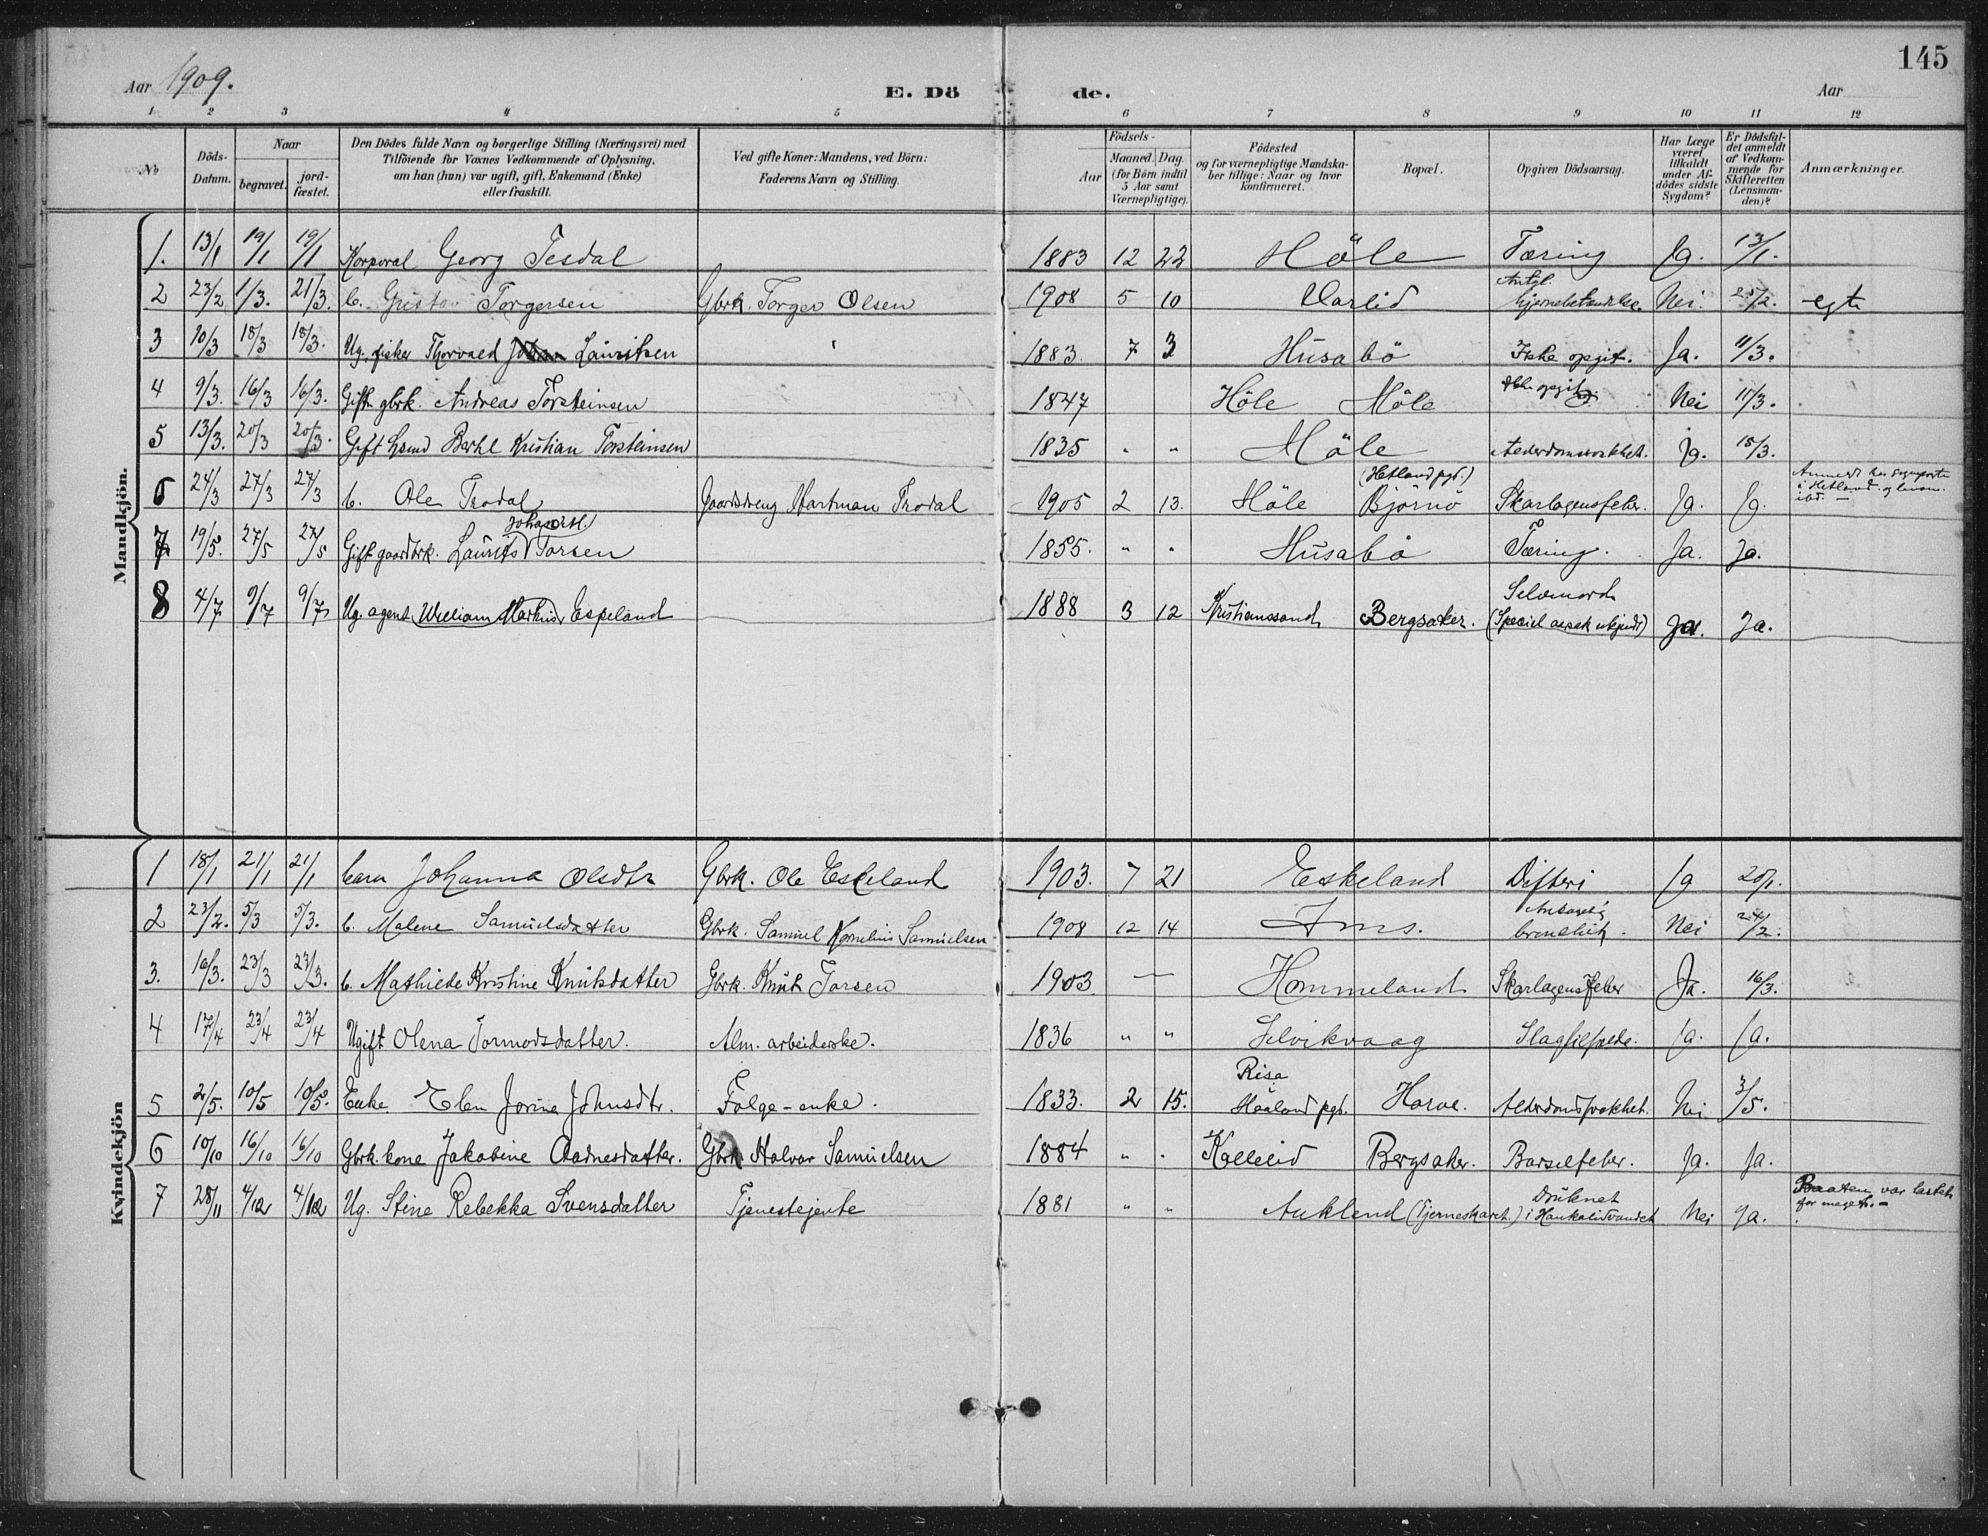 145
Aar 1909.
E. Dö de.
Aar
1 2 3 4 5 6 7 8 9 10 11 12
No
Döds-Datum.
Naar
begravet.
jord-fæstet.
Den Dödes fulde Navn og borgerlige Stilling (Næringsvei) med
Tilföiende for Voxnes Vedkommende af Oplysning,
om han (hun) var ugift, gift, Enkemand (Enke)
eller fraskilt.
Ved gifte Koner: Mandens, ved Börn:
Faderens Navn og Stilling.
Födsels-
Aar
Maaned. Dag.
(for Börn indtil
5 Aar samt
Værnepligtige).
Födested
og for værnepligtige Mandska-
ber tillige: Naar og hvor
konfirmeret.
Bopæl.
Opgiven Dödsaarsag.
Har Læge
været
tilkaldt
under Af-
dödes sidste
Sygdom?
Er Dödsfal-
det anmeldt
af Vedkom-
mende for
Skifteretten
(Lensman-
den)?
Anmærkninger.
Mandkjön.
1. 13/1 19/1 19/1 Korporal Georg Tesdal 1883 12 22 Höle Tæring Ja. 13/1.
2 23/2 1/3. 21/3. b. Gustav Torgersen Gbrk. Torger Olsen 1908 5 10 Varlid Antgl. hjernebetændelse. Nei. 25/2. egte
3 10/3 18/3 18/3. Ug. fisker Thorvald Johan Lauritsen 1883. 7 3 Husabö Ikke opgit. Ja. 11/3.
4 9/3. 16/3 16/3. Gift gbrk. Andreas Torsteinsen 1847 Höle Höle Ikke opgit Nei 11/3.
5 13/3. 20/3 20/3. Gift Lsmd Berthl Kristian Torsteinsen 1835 " " Höle Alderdomssvakhet. Ja. 15/3.
6 24/3 27/3 27/3 b. Ole Trodal Gaardsdreng Hartman Trodal 1905 2 13. Höle (Hetland pgd.) Björnö Skarlagensfeber. Ja. Ja.
7 19/5. 27/5 27/5 Gift gaardbrk. Laurits Torsen 1855. " " Husabö Tæring. Ja. Ja.
8 4/7 9/7 9/7. Ug. agent William Markus Espeland 1888 3 12 Kristianssand Bergsaker. Selvmord (Speciel aarsak ukjendt) Ja. Ja.
Kvindekjön
1 18/1 21/1 21/1 Cara Johanna Olsdtr Gbrk. Ole Eskeland 1903. 7 21 Eskeland Difteri Ja 20/1.
2 23/2. 5/3 5/3. b. Malene Samuelsdatter Gbrk. Samuel Kornelius Samuelsen 1908 12 14 Ims. Nei 24/2.
3. 16/3. 23/3 23/3. b. Mathilde Kristine Knutsdatter Gbrk. Knut Torsen 1903 — Hommeland Skarlagensfeber Ja. 16/3.
4 17/4 23/4 23/4 Ugift Olena Tormodsdatter. Alm. arbeiderske. 1836 " " Selvikvaag Slagtilfælde. Ja. Ja.
5 2/5. 10/5 10/5. Enke Elen Jorine Johnsdtr. Folge-enke. 1833. 2 15. Risa i Haaland pgd. Horve. Alderdomssvakhet. Nei 3/5.
6 10/10 16/10 16/10 Gbrk. kone Jakobine Aadnesdatter. Gbrk. Halvor Samuelsen 1884 " " Kalleid Bergsaker. Barselfeber. Ja. Ja.
7 28/11 4/12 4/12 Ug. Stine Rebekka Svensdatter Tjenestejente 1881 " " Aukland (Tjerneskaret.) Druknet i Haukalidvandet Nei Ja. Baaten var lastet for meget. —